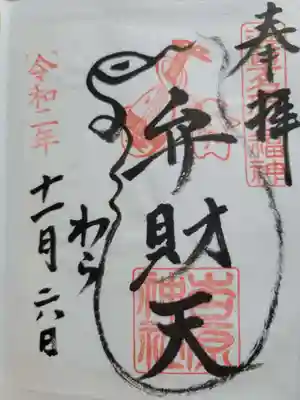 奉拝
弁財天
吉原神社
わら
令和二年
十一月六日